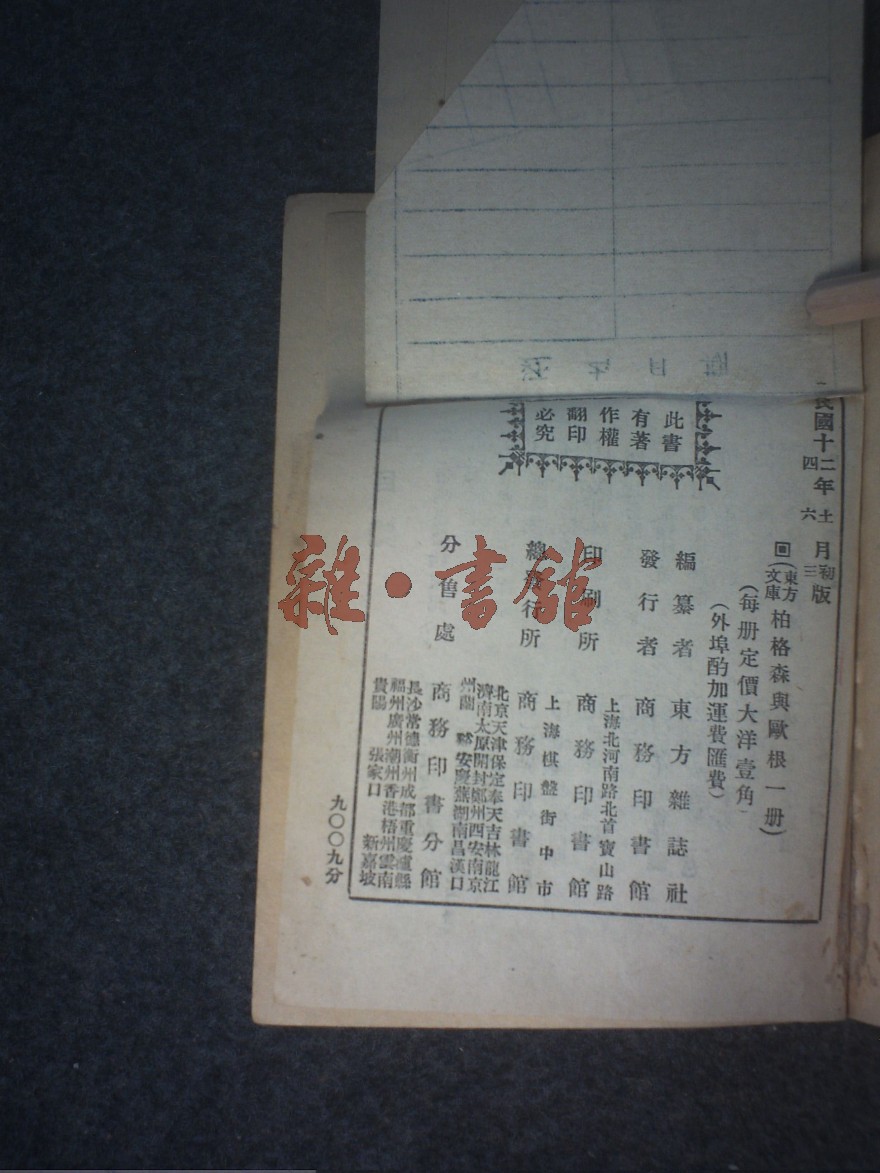 此書
有著
作權
翻印
必究
民國十二年十二月初版
四 六 三
回(東方文庫)柏格森與歐根一册)
(每册定價大洋壹角)
(外埠酌加運費匯費)
編纂者 東方雜誌社
發行者 商務印書館
上海北河南路北首寶山路
印刷所 商務印書館
上海棋盤街中市
總發行所 商務印書館
北京天津保定奉天吉林龍江
濟南太原開封鄭州西安南京
蘭州 安慶蕪湖南昌漢口
分售處 商務印書分館
長沙常德衡州成都重慶瀘縣
福州廣州潮州香港梧州雲南
貴陽 張家口 新嘉坡
九〇〇九分
雜·書館